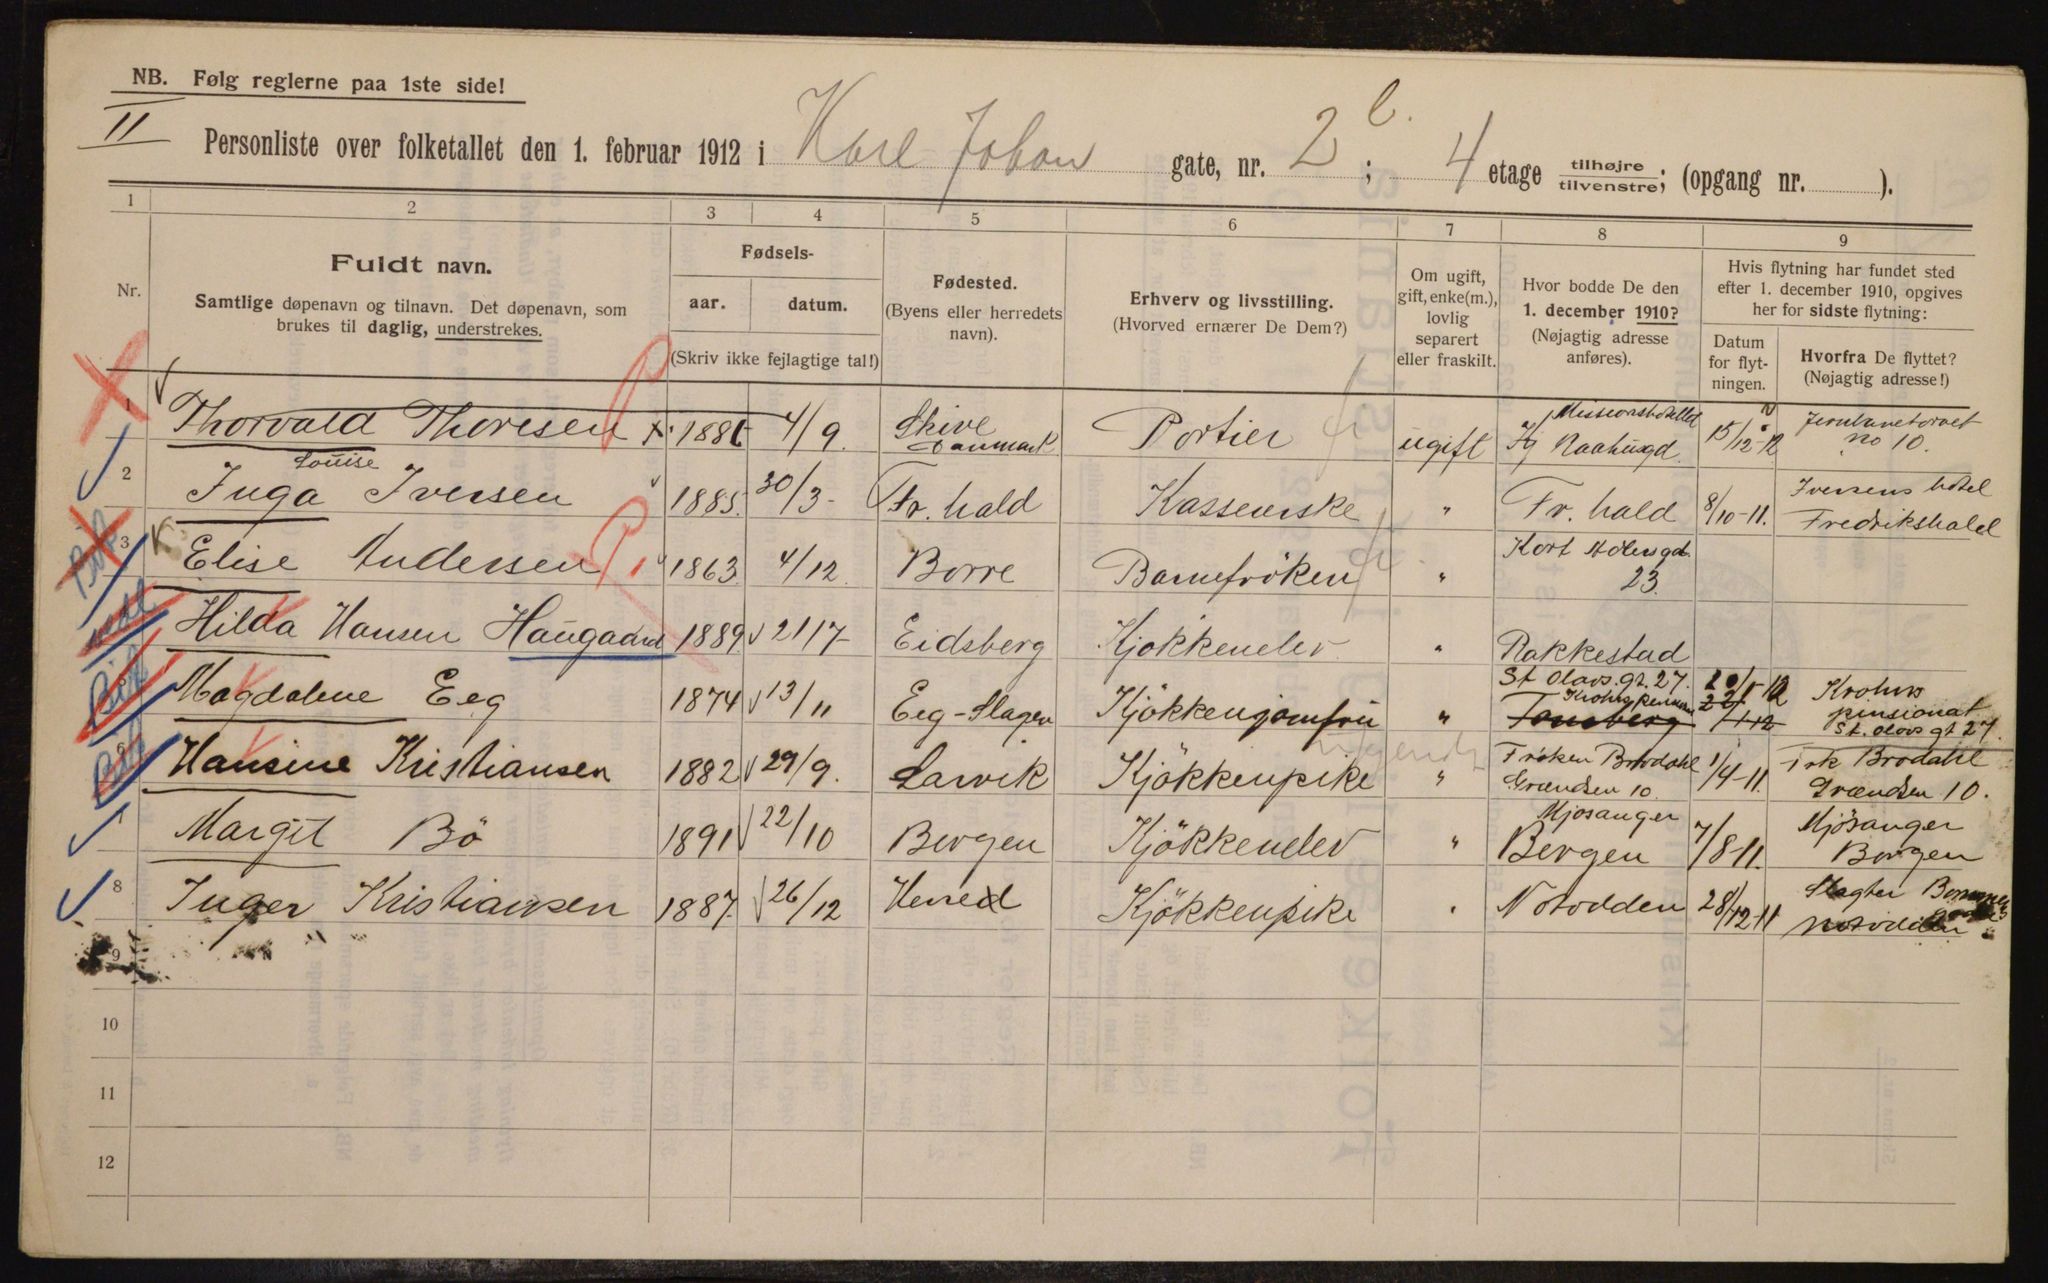 NB. Følg reglerne paa 1ste side!
II
Personliste over folketallet den 1. februar 1912 i Karl Johan gate, nr. 2 b. ; 4 etage tilhøjre/tilvenstre; (opgang nr. ).
1 2 3 4 5 6 7 8 9
Nr.
Fuldt navn.
Samtlige døpenavn og tilnavn. Det døpenavn, som
brukes til daglig, understrekes.
Fødsels-
aar. datum.
(Skriv ikke fejlagtige tal!)
Fødested.
(Byens eller herredets
navn).
Erhverv og livsstilling.
(Hvorved ernærer De Dem?)
Om ugift,
gift, enke(m.),
lovlig
separert
eller fraskilt.
Hvor bodde De den
1. december 1910?
(Nøjagtig adresse
anføres).
Hvis flytning har fundet sted
efter 1. december 1910, opgives
her for sidste flytning:
Datum
for flyt-
ningen.
Hvorfra De flyttet?
(Nøjagtig adresse!)
1 Thorvald Thoresen 1881 4/9. Skive Danmark Portier ugift Missionshotellet 15/12-12 Jernbanetorvet no 10.
2 Inga Louise Iversen 1885. 30/3- Fr. hald Kasserske " Fr. hald 8/10-11. Iversens hotel Fredrikshald
3 Elise Andersen 1863 4/12. Borre Barnefröken " Kort Adelersgd. 23.
Hilda Hansen Haugaard 1889 21/7- Eidsberg Kjøkkenelev " Rakkestad
Magdalene Eeg 1874 13/11 Eeg-Slagen Kjökkenjomfru " St Olavs.gt. 27. Tønsberg 20/1-12 22/1-12 Krohns pensionat St. Olavs gt 27.
6 Hansine Kristiansen 1882 29/9. Larvik Kjökkenpike " Frøken Brodahl Grændsen 10. 1/4-11. Frk Brodahl Grændsen 10.
7 Margit Bö 1891 22/10 Bergen Kjökkenelev " Mjosanger Bergen 7/8-11. Mjösanger Bergen
8 Inger Kristiansen 1887. 26/12 Kjökkenpike " Notodden 28/12-11 Slagter Notodden
9
10
11
12